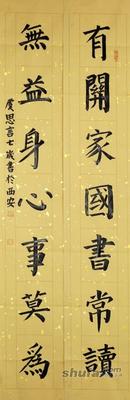 有關家國書常讀
無益身心事莫為
虞思言七歲書於西安